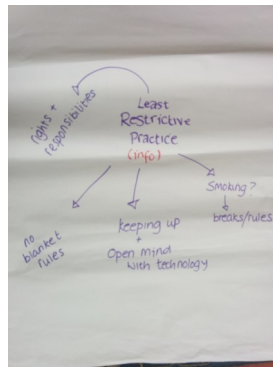 Least
Restrictive
Practice
(info)
rights +
responsibilities
no
blanket
rules
keeping up
+
Open mind
with technology
Smoking?
breaks/rules